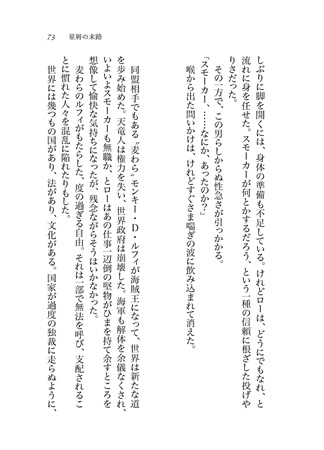 星屑の末路
73
しぶりに脚を開くには、身体の準備も不足している。けれどローは、どうにでもなれ、と
流れに身を任せた。スモーカーが何とかするだろう、という一種の信頼に根ざした投げや
りさだった。
その一方で、この男らしからぬ性急さが引っかかる。
「スモーカー、……なにか、あったのか？」
喉から出た問いかけは、けれどすぐさま喘ぎの波に飲み込まれて消えた。
同盟相手でもある〝麦わら〟モンキー・D・ルフィが海賊王になって、世界は新たな道
を歩み始めた。天竜人は権力を失い、世界政府は崩壊した。海軍も解体を余儀なくされ、
いよいよスモーカーも無職か、とローはあの仕事一辺倒の堅物がひまを持て余すところを
想像して愉快な気持ちになったが、残念ながらそうはいかなかった。
麦わらのルフィがもたらした、度の過ぎる自由。それは一部で無法を呼び、支配されるこ
とに慣れた人々を混乱に陥れたりもした。
世界には幾つもの国があり、法があり、文化がある。国家が過度の独裁に走らぬように、